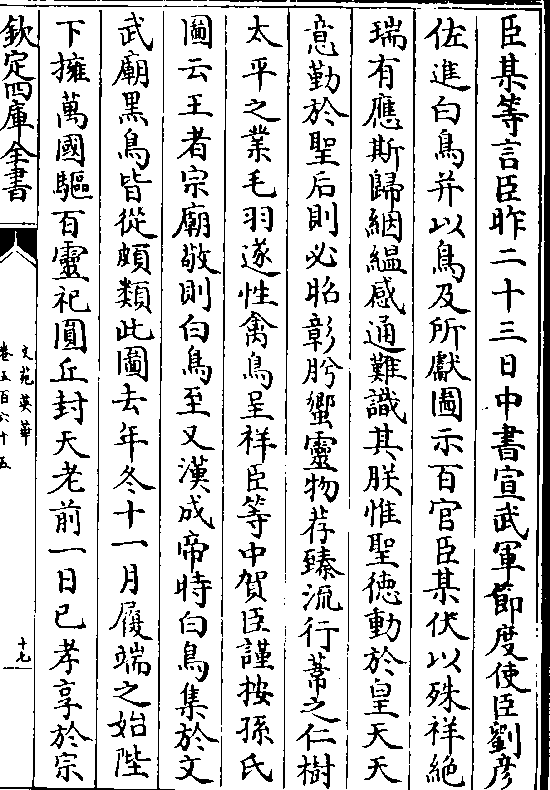 臣某等言臣昨二十三日中書宣武軍節度使臣劉彦
佐進白烏并以烏及所獻圖示百官臣某伏以殊祥絶
瑞有應斯歸絪緼感通難識其朕惟聖德動於皇天天
意勤於聖后則必昭彰肹蠁靈物荐臻流行葦之仁樹
太平之業毛羽遂性禽鳥呈祥臣等中賀臣謹按孫氏
圖云王者宗廟敬則白烏至又漢成帝時白烏集於文
武廟黒烏皆從頗類此圖去年冬十一月履端之始陛
下擁萬國驅百靈祀圓丘封天老前一日已孝享於宗
欽定四庫全書
文苑英華
卷五百六十五
十七